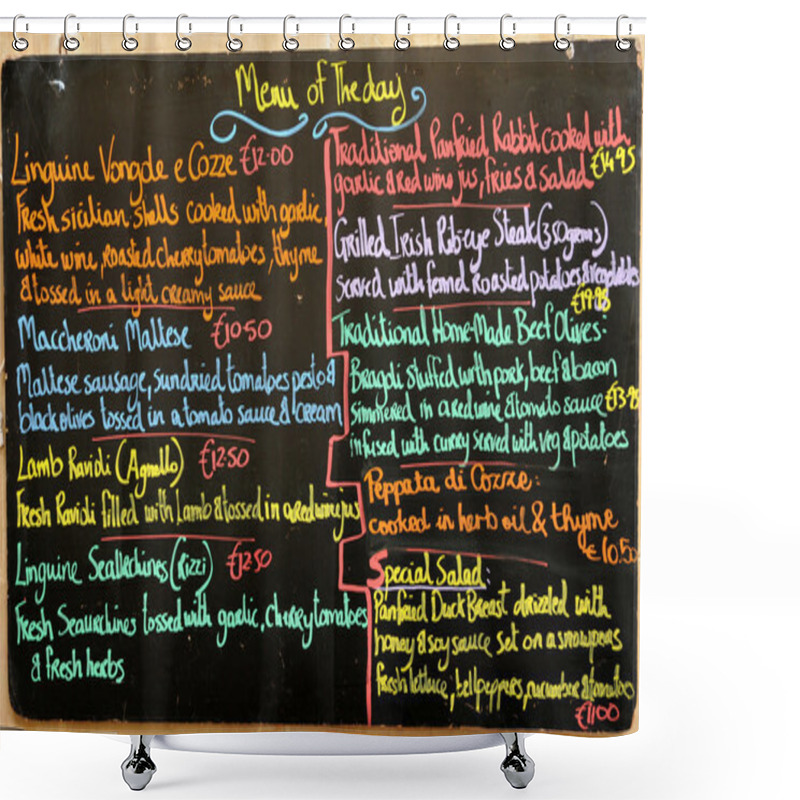 Menu of The day
Linguine Vongole e Cozze €12.00
Fresh sicilian shells cooked with garlic,
white wine, roasted cherrytomatoes, thyme
& tossed in a light creamy sauce
Maccheroni Maltese €10.50
Maltese sausage, sundried tomatoes pesto &
black olives tossed in a tomato sauce & cream
Lamb Ravioli (Agnello) €12.50
Fresh Ravioli filled with Lamb & tossed in a red wine jus
Linguine Seaurchines (Rizzi) €12.50
Fresh Seaurchines tossed with garlic, cherrytomatoes
& fresh herbs
Traditional Panfried Rabbit cooked with
garlic & red wine jus, fries & salad €14.95
Grilled Irish Rib-eye Steak (350grms)
served with fennel roasted potatoes & vegetables
€19.98
Traditional Home-Made Beef Olives:
Bragoli stuffed with pork, beef & bacon
simmered in a red wine & tomato sauce €13.95
infused with curry served with veg & potatoes
Peppata di Cozze:
cooked in herb oil & thyme
€10.50
Special Salad:
Panfried Duck Breast drizzled with
honey & soy sauce set on a snowpeas
fresh lettuce, bellpeppers, cucumber & tomatoes
€11.00